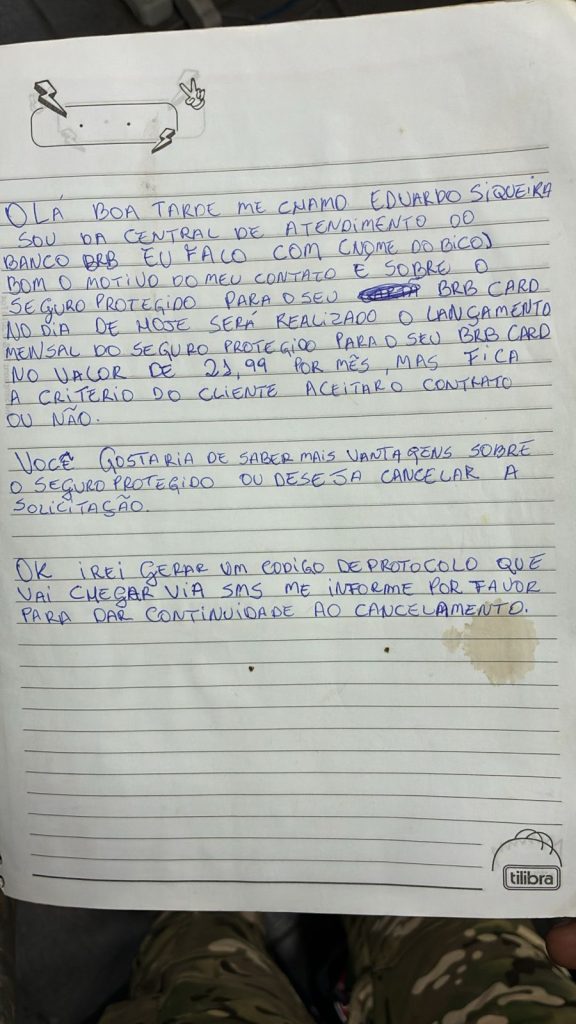 OLÁ BOA TARDE ME CHAMO EDUARDO SIQUEIRA
SOU DA CENTRAL DE ATENDIMENTO DO
BANCO BRB EU FALO COM (NOME DO BICO)
BOM O MOTIVO DO MEU CONTATO E SOBRE O
SEGURO PROTEGIDO PARA O SEU BRB CARD
NO DIA DE HOJE SERÁ REALIZADO O LANÇAMENTO
MENSAL DO SEGURO PROTEGIDO PARA O SEU BRB CARD
NO VALOR DE 21,99 POR MÊS, MAS FICA
A CRITERIO DO CLIENTE ACEITAR O CONTRATO
OU NÃO.
VOCÊ GOSTARIA DE SABER MAIS VANTAGENS SOBRE
O SEGURO PROTEGIDO OU DESEJA CANCELAR A
SOLICITAÇÃO.
OK IREI GERAR UM CODIGO DE PROTOCOLO QUE
VAI CHEGAR VIA SMS ME INFORME POR FAVOR
PARA DAR CONTINUIDADE AO CANCELAMENTO.
tilibra